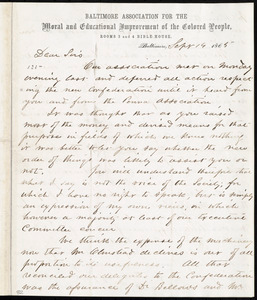 BALTIMORE ASSOCIATION FOR THE
Moral and Educational Improvement of the Colored People,
ROOMS 3 and 4 BIBLE HOUSE.
Baltimore, Sept 14 1865
Dear Sirs
Our association met on Monday
evening last and deferred all action respect
ing the new Confederation until it heard from
you and from the Penna Association.
It was thought that as you raised
most of the money and desired means for that
purpose in fields of which we know nothing
it was better to hear you say whether the new
order of things was likely to assist you or
not. You will understand therefore that
what I say is not the voice of the Society, for
which I have no right to speak; this is simply
an expression of my own views, in which
however a majority at least of our Executive
Committee concur
We think the expense of the machinery
now that Mr declines is out of all
proportion to its usefulness. All that
reconciled our delegates to the Confederation
was the assurance of Dr Bellows and Mr